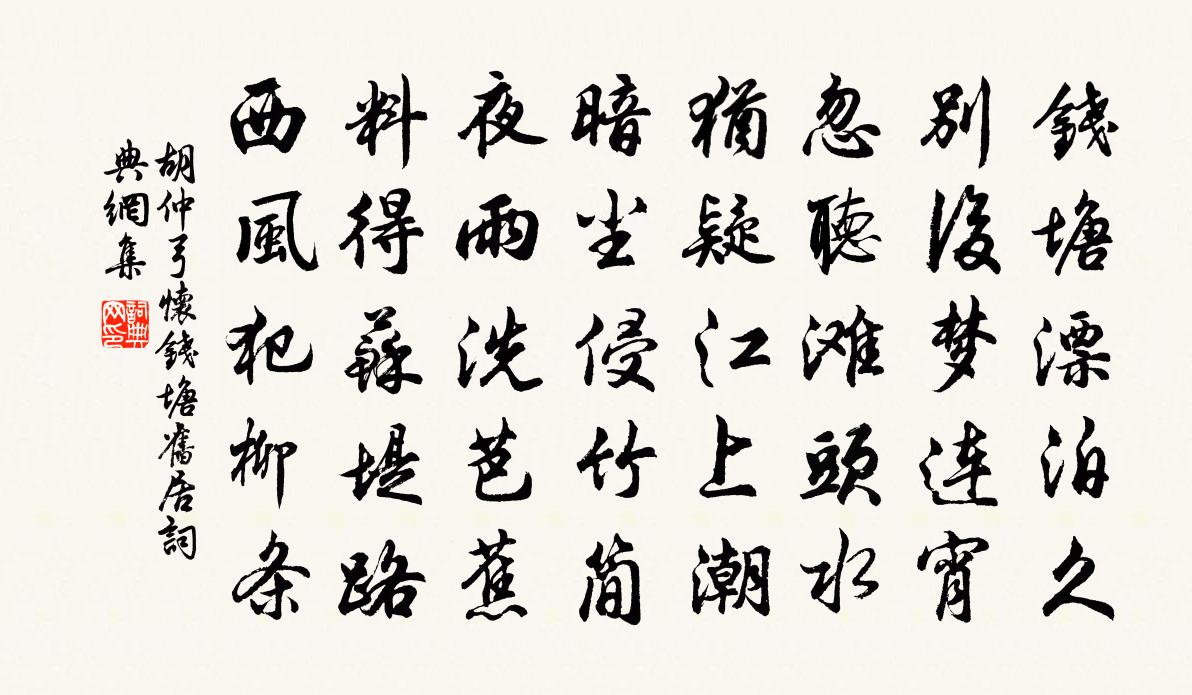 錢塘漂泊久
別後梦连宵
忽聽滩頭水
猶疑江上潮
暗尘侵竹简
夜雨洗芭蕉
料得蘇堤路
西風犯柳条
胡仲弓懷錢塘舊居詞
典網集
詞典
网印